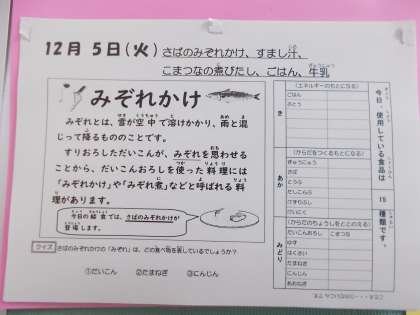 12月 5日(火) さばのみぞれかけ、すまし汁、
こまつなの煮びたし、ごはん、牛乳
みぞれかけ
みぞれとは、雪が空中で溶けかかり、雨と混
じって降るもののことです。
すりおろしただいこんが、みぞれを思わせる
ことから、だいこんおろしを使った料理には
「みぞれかけ」や「みぞれ煮」などと呼ばれる料
理があります。
今日の給食では、さばのみぞれかけが
登場します。
クイズ さばのみぞれかけの「みぞれ」は、どの食べ物を表しているでしょうか?
①だいこん ②たまねぎ ③にんじん
今日、使用している食品は 15 種類です。
き
(エネルギーのもとになる)
ごはん
さとう
あか
(からだをつくるもとになる)
ぎゅうにゅう
さば
とうふ
だしこんぶ
けずりぶし
みどり
(からだのちょうしをととのえる)
だいこんおろし こまつな
ゆず
はくさい
たまねぎ
にんじん